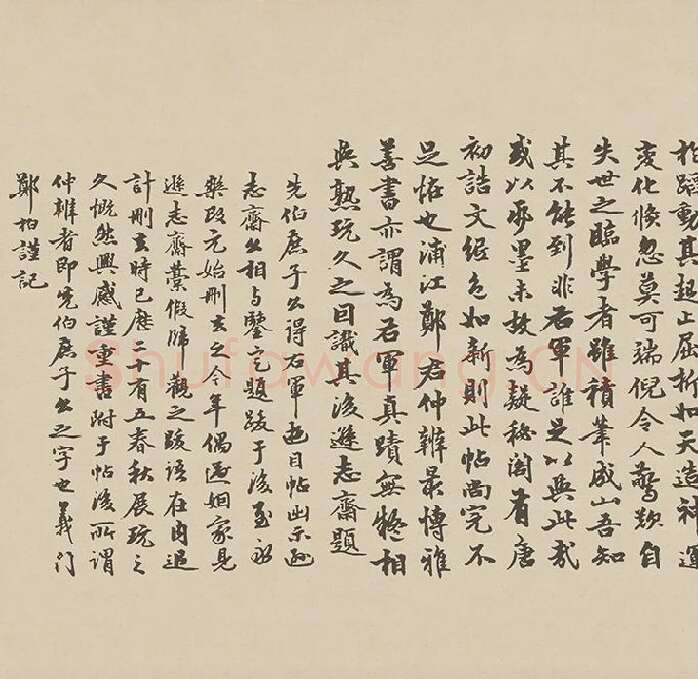 動其起止屈折如天造神運
變化倏忽莫可端倪令人驚歎自
失世之臨學者雖積筆成山吾知
其不能到非右軍誰足以與此哉
或以紙墨未故為疑秘閣有唐
初誥文紙色如新則此帖尚完不
足怪也浦江鄭君仲辨最博雅
善書亦謂為右軍真蹟無疑相
與熟玩久之因識其後遜志齋題
先伯庶子公得右軍遊目帖出示遜
志齋公相與鑒定題跋于後至永
樂改元始刪去之今年偶過姻家見
遜志齋藁假歸觀之跋語在內追
計刪去時已歷二十有五春秋展玩之
久慨然興感謹重書附于帖後所謂
仲辨者即先伯庶子公之字也義門
鄭柏謹記
Shufawang.CN